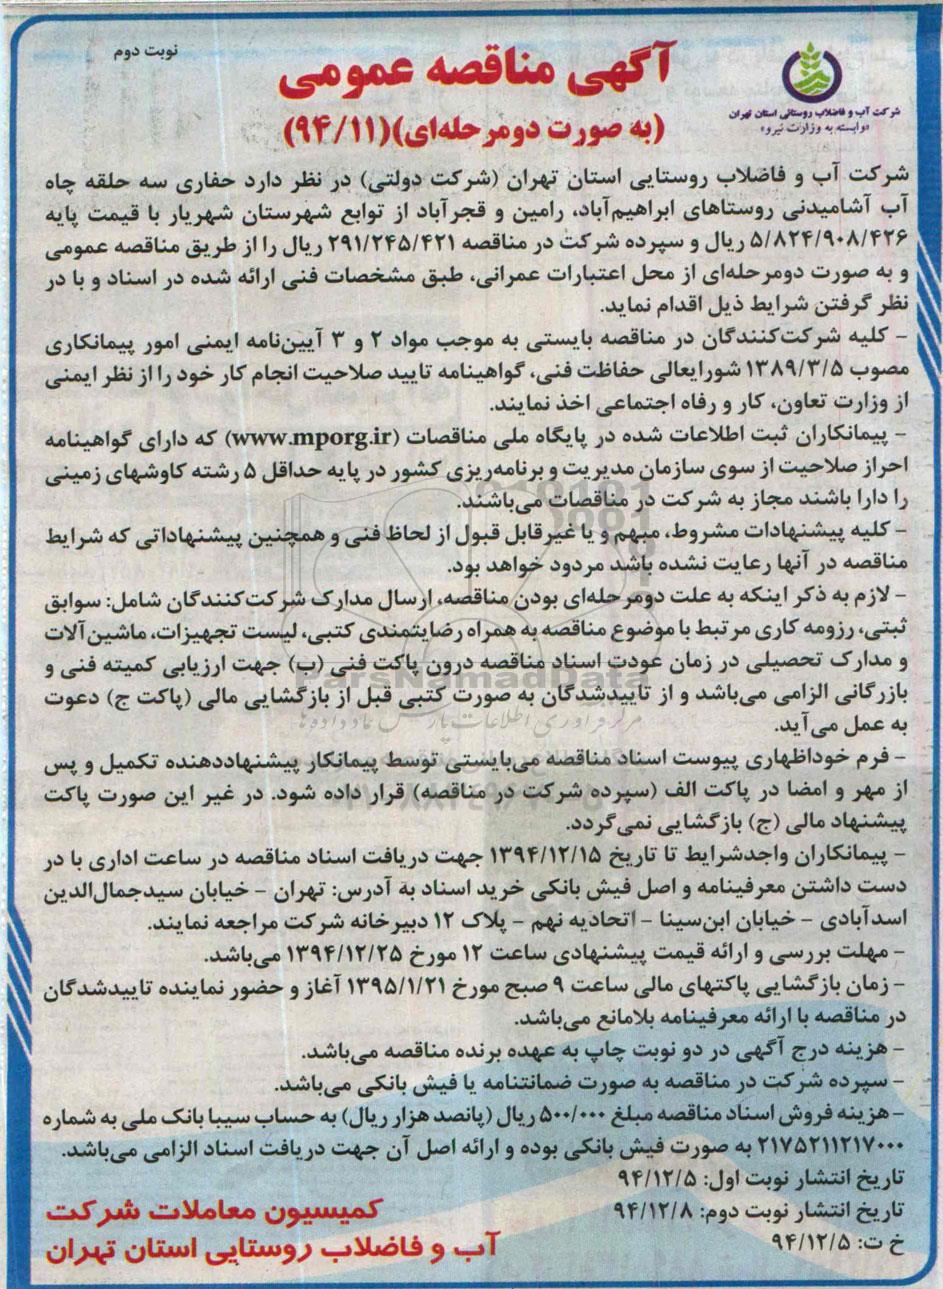 نوبت دوم
آگهی مناقصه عمومی
(به صورت دومرحله‌ای)(۹۴/۱۱)
شرکت آب و فاضلاب روستائی استان تهران
«وابسته به وزارت نیرو»
شرکت آب و فاضلاب روستایی استان تهران (شرکت دولتی) در نظر دارد حفاری سه حلقه چاه
آب آشامیدنی روستاهای ابراهیم‌آباد، رامین و قجرآباد از توابع شهرستان شهریار با قیمت پایه
۵/۸۲۴/۹۰۸/۴۲۶ ریال و سپرده شرکت در مناقصه ۲۹۱/۲۴۵/۴۲۱ ریال را از طریق مناقصه عمومی
و به صورت دومرحله‌ای از محل اعتبارات عمرانی، طبق مشخصات فنی ارائه شده در اسناد و با در
نظر گرفتن شرایط ذیل اقدام نماید.
- کلیه شرکت‌کنندگان در مناقصه بایستی به موجب مواد ۲ و ۳ آیین‌نامه ایمنی امور پیمانکاری
مصوب ۱۳۸۹/۳/۵ شورایعالی حفاظت فنی، گواهینامه تایید صلاحیت انجام کار خود را از نظر ایمنی
از وزارت تعاون، کار و رفاه اجتماعی اخذ نمایند.
- پیمانکاران ثبت اطلاعات شده در پایگاه ملی مناقصات (www.mporg.ir) که دارای گواهینامه
احراز صلاحیت از سوی سازمان مدیریت و برنامه‌ریزی کشور در پایه حداقل ۵ رشته کاوشهای زمینی
را دارا باشند مجاز به شرکت در مناقصات می‌باشند.
- کلیه پیشنهادات مشروط، مبهم و یا غیرقابل قبول از لحاظ فنی و همچنین پیشنهاداتی که شرایط
مناقصه در آنها رعایت نشده باشد مردود خواهد بود.
- لازم به ذکر اینکه به علت دومرحله‌ای بودن مناقصه، ارسال مدارک شرکت‌کنندگان شامل: سوابق
ثبتی، رزومه کاری مرتبط با موضوع مناقصه به همراه رضایتمندی کتبی، لیست تجهیزات، ماشین‌آلات
و مدارک تحصیلی در زمان عودت اسناد مناقصه درون پاکت فنی (ب) جهت ارزیابی کمیته فنی و
ParsNamadData
بازرگانی الزامی می‌باشد و از تاییدشدگان به صورت کتبی قبل از بازگشایی مالی (پاکت ج) دعوت
به عمل می‌آید.
- فرم خوداظهاری پیوست اسناد مناقصه می‌بایستی توسط پیمانکار پیشنهاددهنده تکمیل و پس
از مهر و امضا در پاکت الف (سپرده شرکت در مناقصه) قرار داده شود. در غیر این صورت پاکت
پیشنهاد مالی (ج) بازگشایی نمی‌گردد.
- پیمانکاران واجدشرایط تا تاریخ ۱۳۹۴/۱۲/۱۵ جهت دریافت اسناد مناقصه در ساعت اداری با در
دست داشتن معرفینامه و اصل فیش بانکی خرید اسناد به آدرس: تهران - خیابان سیدجمال‌الدین
اسدآبادی - خیابان ابن‌سینا - اتحادیه نهم - پلاک ۱۲ دبیرخانه شرکت مراجعه نمایند.
- مهلت بررسی و ارائه قیمت پیشنهادی ساعت ۱۲ مورخ ۱۳۹۴/۱۲/۲۵ می‌باشد.
- زمان بازگشایی پاکتهای مالی ساعت ۹ صبح مورخ ۱۳۹۵/۱/۲۱ آغاز و حضور نماینده تاییدشدگان
در مناقصه با ارائه معرفینامه بلامانع می‌باشد.
- هزینه درج آگهی در دو نوبت چاپ به عهده برنده مناقصه می‌باشد.
- سپرده شرکت در مناقصه به صورت ضمانتنامه یا فیش بانکی می‌باشد.
- هزینه فروش اسناد مناقصه مبلغ ۵۰۰/۰۰۰ ریال (پانصد هزار ریال) به حساب سیبا بانک ملی به شماره
۲۱۷۵۲۱۱۲۱۷۰۰۰ به صورت فیش بانکی بوده و ارائه اصل آن جهت دریافت اسناد الزامی می‌باشد.
تاریخ انتشار نوبت اول: ۹۴/۱۲/۵
تاریخ انتشار نوبت دوم: ۹۴/۱۲/۸
خ ت: ۹۴/۱۲/۵
کمیسیون معاملات شرکت
آب و فاضلاب روستایی استان تهران